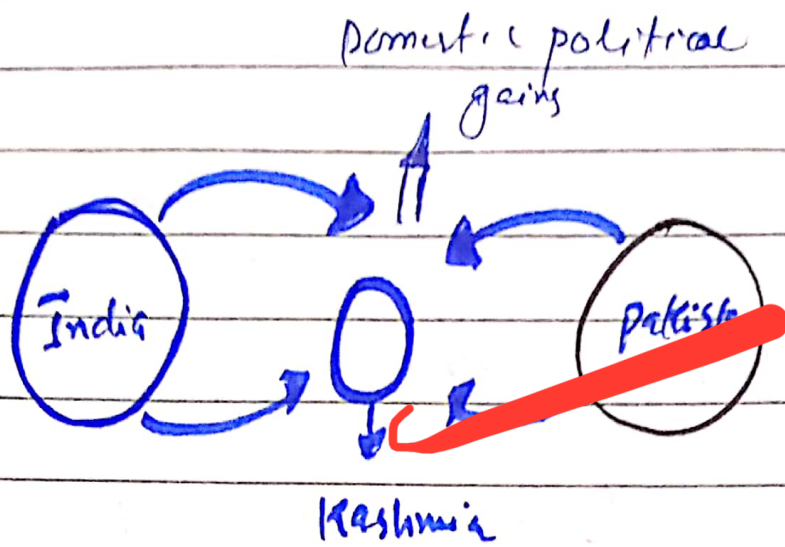 Domestic political
gains
India
Kashmir